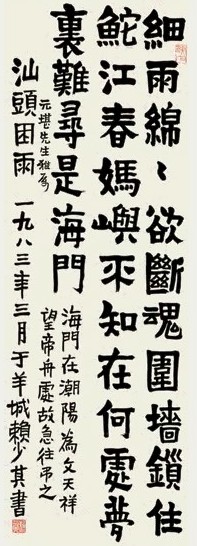 細雨綿〻欲斷魂圍墻鎖住
鮀江春媽嶼不知在何處夢
裏難尋是海門
元堪先生雅屬
汕頭困雨 一九八三年三月于羊城賴少其書
海門在潮陽為文天祥
望帝舟處故急往弔之